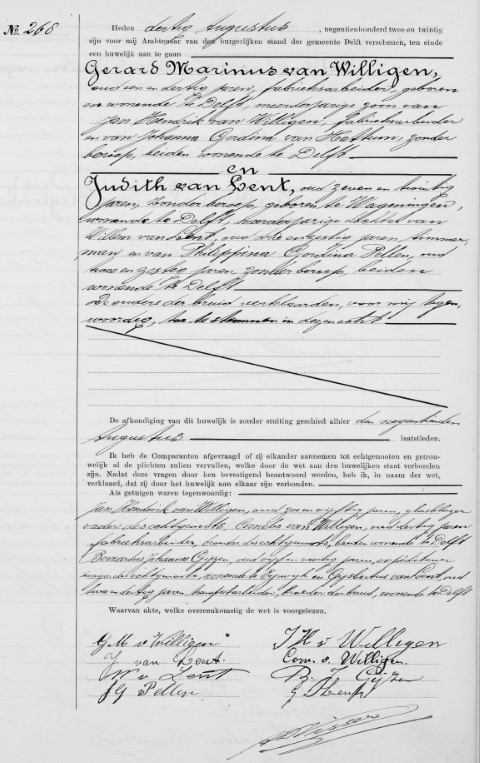 № 268
Heden dertig Augustus, negentienhonderd twee en twintig
zijn voor mij Ambtenaar van den burgerlijken stand der gemeente Delft verschenen, ten einde
een huwelijk aan te gaan
Gerard Marinus van Willigen,
oud een en dertig jaren, fabrieksarbeider, geboren
en wonende te Delft, meerderjarige zoon van
Jan Hendrik van Willigen, fabrieksarbeider
en van Johanna Gordina van Hattum, zonder
beroep, beiden wonende te Delft
en
Judith van Lent, oud zeven en twintig
jaren, zonder beroep, geboren te Wageningen,
wonende te Delft, meerderjarige dochter van
Willem van Lent, oud drie en zestig jaren, timmer
man en van Philippina Gordina Pellen, oud
twee en zestig jaren, zonder beroep, beiden
wonende te Delft
De ouders der bruid verklaarden, voor mij tegen
woordig, toe te stemmen in deze echt
De afkondiging van dit huwelijk is zonder stuiting geschied alhier den negentienden
Augustus laatstleden.
Ik heb de Comparanten afgevraagd of zij elkander aannemen tot echtgenooten en getrou-
welijk al de plichten zullen vervullen, welke door de wet aan den huwelijken staat verbonden
zijn. Nadat deze vragen door hen bevestigend beantwoord werden, heb ik, in naam der wet,
verklaard, dat zij door het huwelijk aan elkaar zijn verbonden.
Als getuigen waren tegenwoordig:
Jan Hendrik van Willigen, oud zes en vijftig jaren,
vader des echtgenoots, Cornelis van Willigen, oud dertig jaren
fabrieksarbeider, broeder des echtgenoots, beiden wonende te Delft
Johannes Gijzen, oud vijf en veertig jaren,
zwager der echtgenoote, wonende te Rijswijk en Gijsbertus van Lent, oud
twee en dertig jaren, broeder der bruid, wonende te Delft
Waarvan akte, welke overeenkomstig de wet is voorgelezen.
G M v Willigen
J H v Willegen
J van Lent.
Corn. v. Willigen.
W v Lent
B. J. Gijzen
J G Pellen
G v Lent